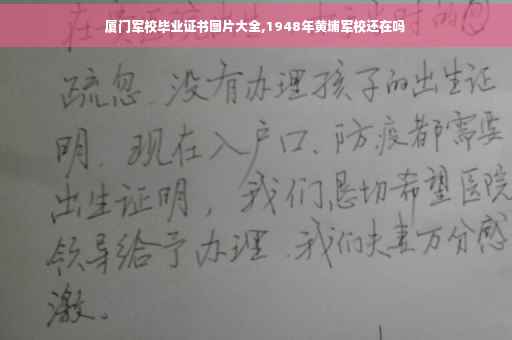 厦门军校毕业证书图片大全,1948年黄埔军校还在吗
疏忽.没有办理孩子的出生证
明.现在入户口、防疫都需要
出生证明，我们恳切希望医院
领导给予办理.我们夫妻万分感
激。